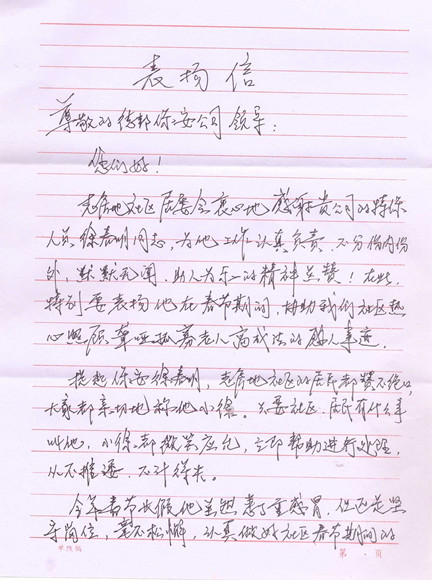 表扬信
尊敬的德邦保安公司领导:
您们好!
老房地社区居委会衷心地感谢贵公司的特保
人员徐春明同志,为他工作认真负责、不分份内份
外、默默无闻、助人为乐的精神点赞!在此,
特别要表扬他在春节期间,协助我们社区热
心照顾聋哑孤寡老人高成法的感人事迹。
提起保安徐春明,老房地社区的居民都赞不绝口,
大家都亲切地称他小徐。只要社区居民有什么事
叫他,小徐都微笑应允,立即帮助进行处理,
从不推诿、不计得失。
今年春节长假他虽然患了重感冒,但还是坚
守岗位,毫不松懈,认真做好社区春节期间的
第 页